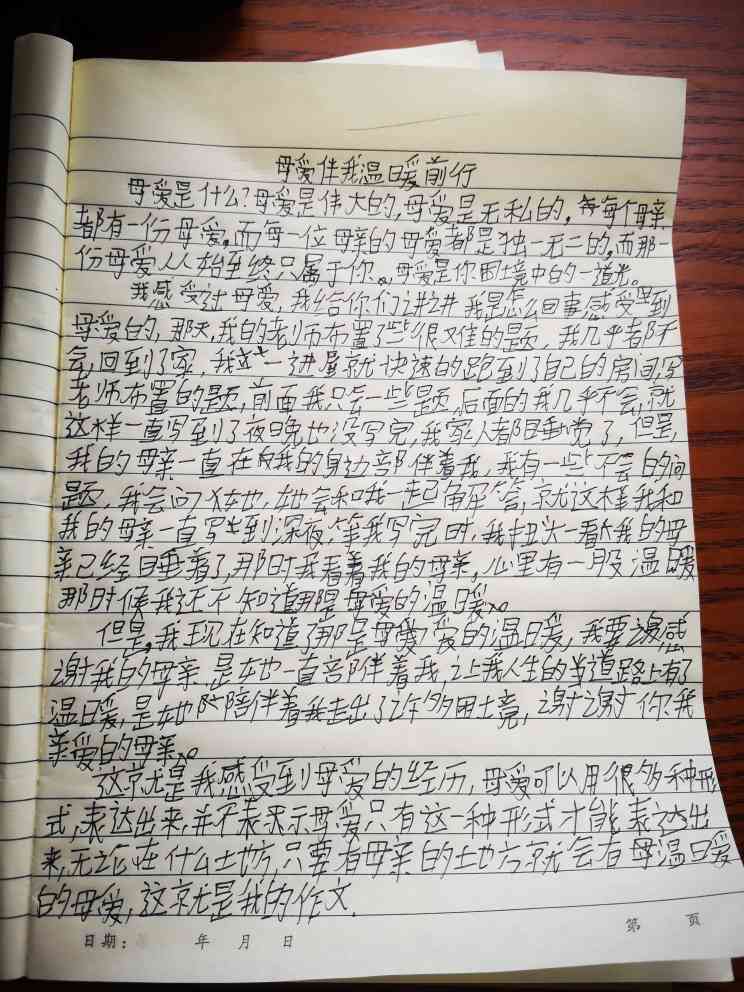 母爱伴我温暖前行
母爱是什么?母爱是伟大的,母爱是无私的。每个母亲
都有一份母爱。而每一位母亲的母爱都是独一无二的,而那一
份母爱从始至终只属于你。母爱是你困境中的一道光。
我感受过母爱,我给你们讲讲我是怎么回事感受到
母爱的,那天,我的老师布置了些很难的题,我几乎都不
会,回到了家,我一进屋就快速的跑到了自己的房间,写
老师布置的题,前面我只会一些题,后面的我几乎不会,就
这样一直写到了夜晚也没写完,我家人都睡觉了,但是,
我的母亲一直在我的身边陪伴着我,我有一些不会的问
题,我会问她,她会和我一起解答,就这样我和
我的母亲一直写到深夜,等我写完时,我扭头一看我的母
亲已经睡着了,那时我看着我的母亲,心里有一股温暖
那时候我还不知道那是母爱的温暖。
但是,我现在知道了那是母爱的温暖,我要感
谢我的母亲,是她一直陪伴着我,让我人生的道路上有了
温暖,是她陪伴着我走出了许多困境,谢谢你我
亲爱的母亲。
这就是我感受到母爱的经历,母爱可以用很多种形
式,表达出来,并不表示母爱只有这一种形式才能表达出
来,无论在什么地方,只要有母亲的地方就会有温暖
的母爱,这就是我的作文.
第 页
日期: 年 月 日